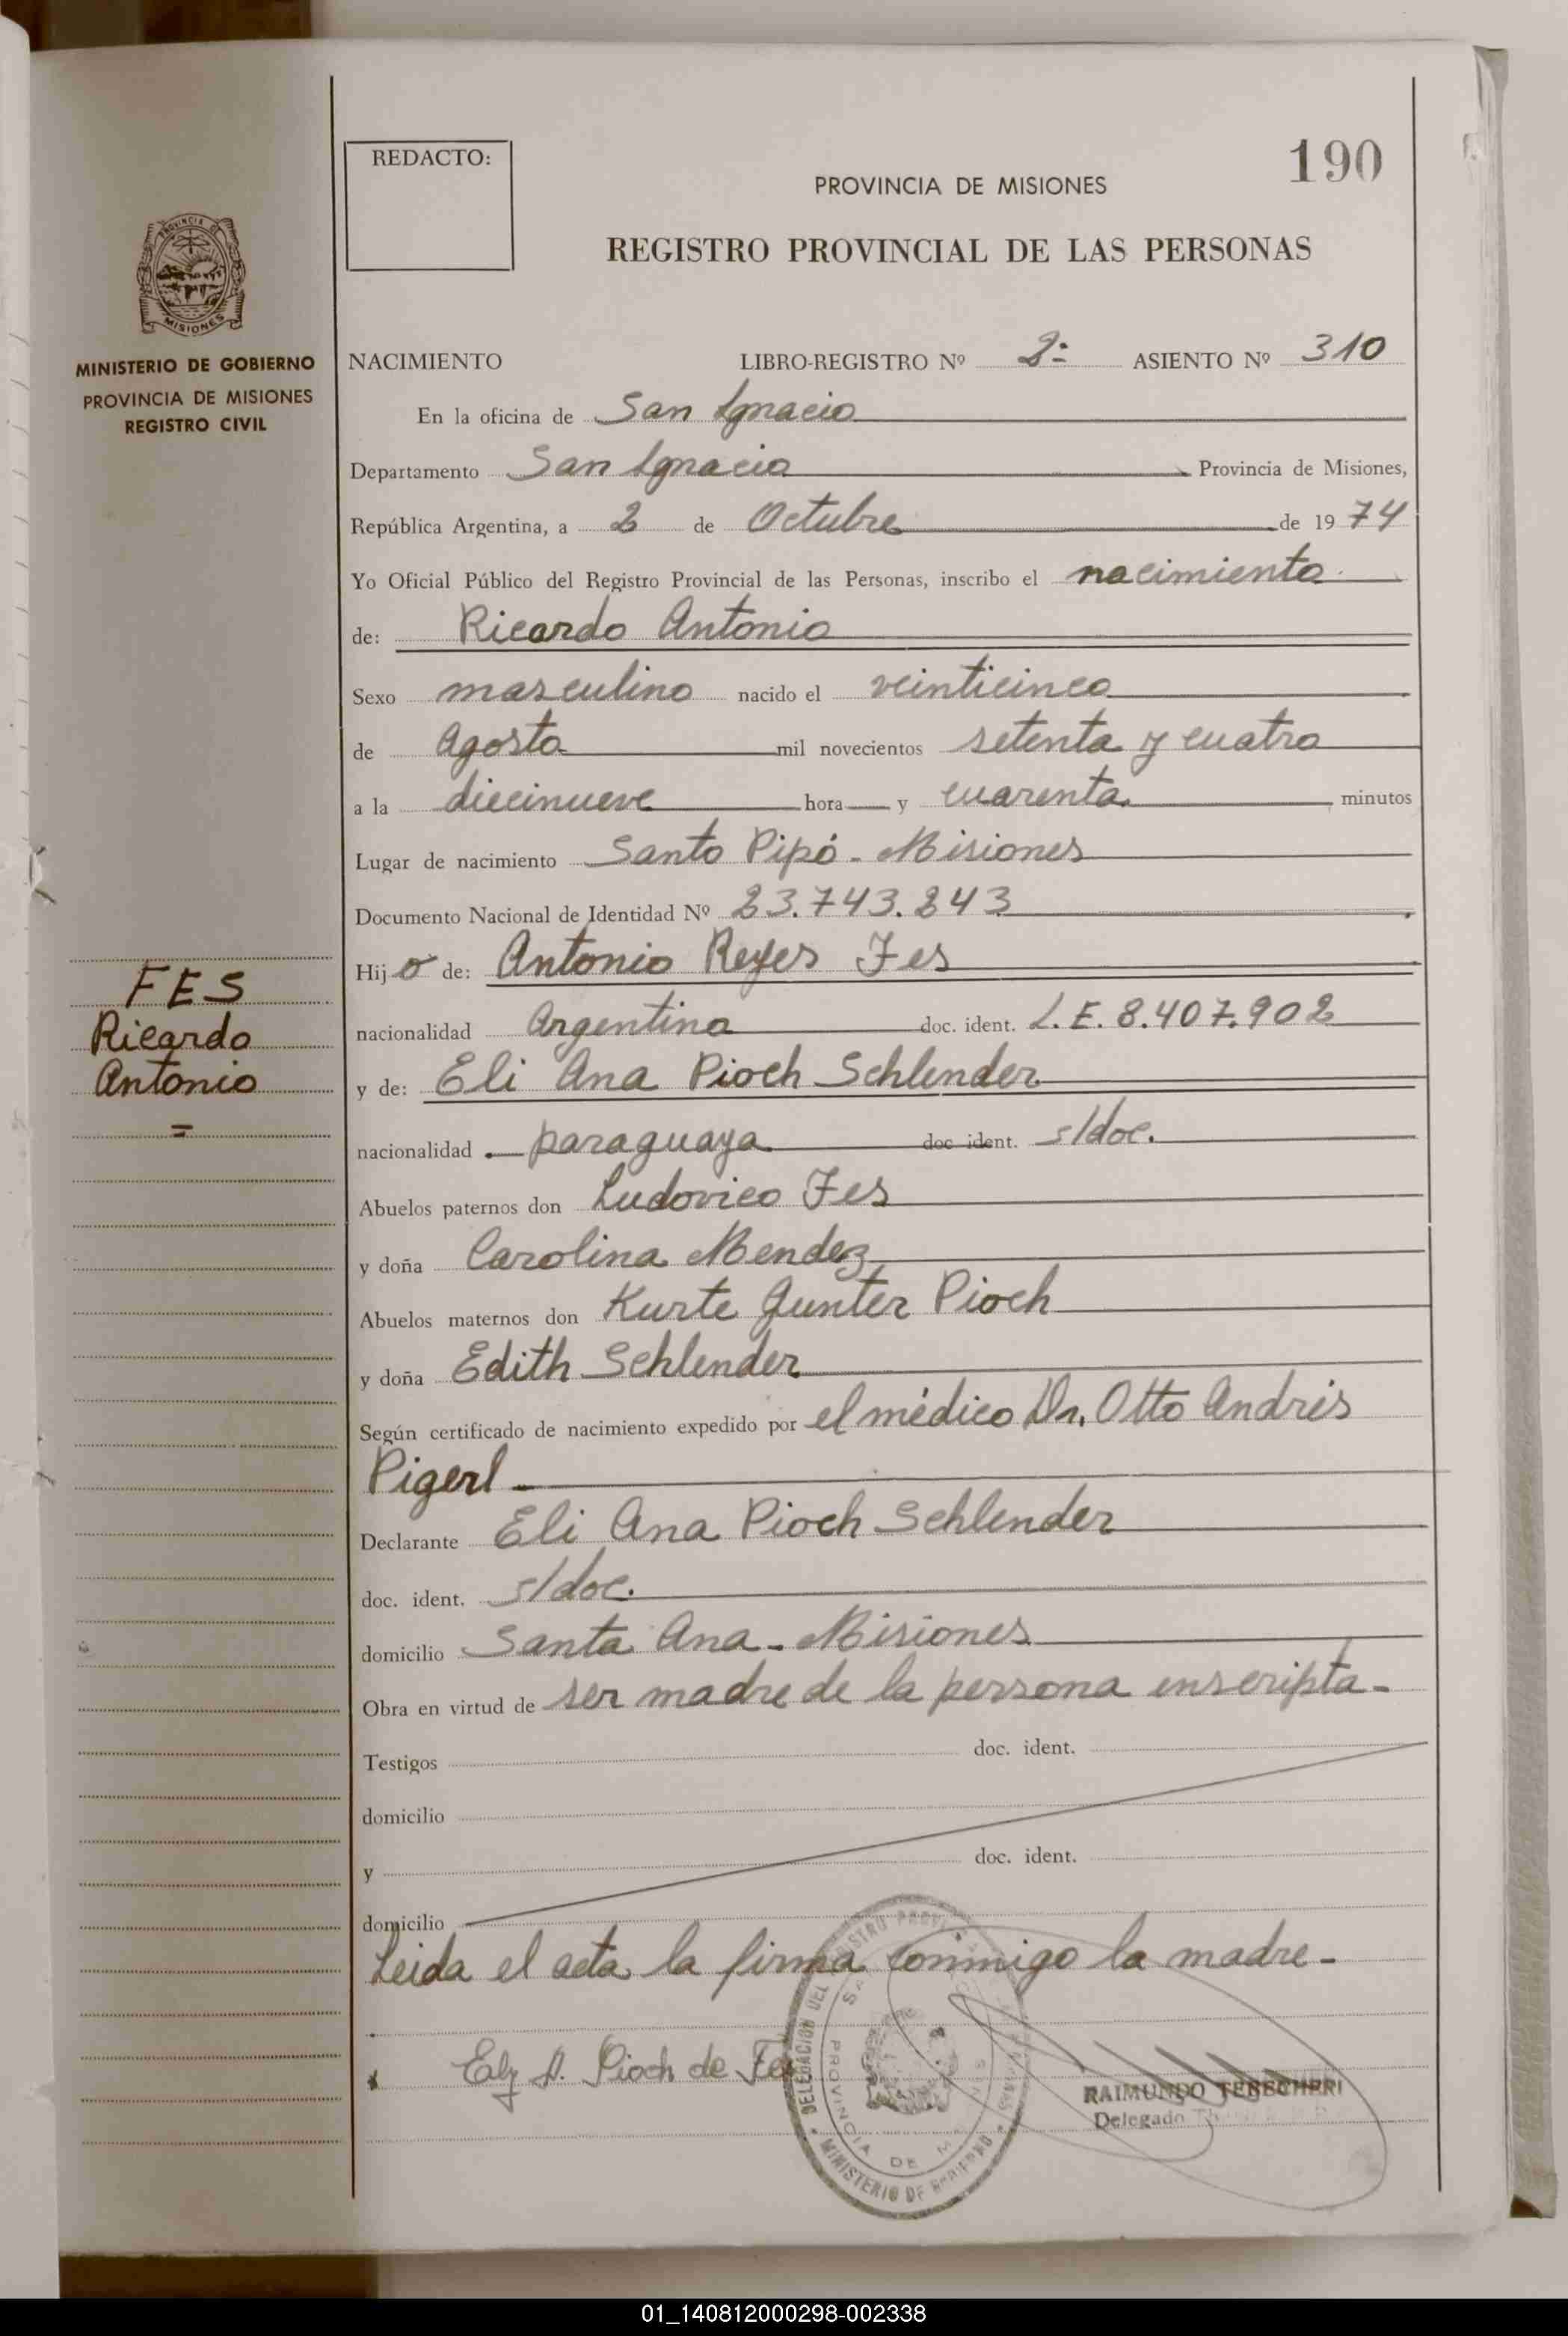 REDACTO:
190
PROVINCIA DE MISIONES
REGISTRO PROVINCIAL DE LAS PERSONAS
MISIONES
MINISTERIO DE GOBIERNO
PROVINCIA DE MISIONES
REGISTRO CIVIL
NACIMIENTO LIBRO-REGISTRO Nº 2º ASIENTO Nº 310
En la oficina de San Ignacio
Departamento San Ignacio Provincia de Misiones,
República Argentina, a 2 de Octubre de 1974
Yo Oficial Público del Registro Provincial de las Personas, inscribo el nacimiento
de: Ricardo Antonio
Sexo masculino nacido el veinticinco
de Agosto mil novecientos setenta y cuatro
a la diecinueve hora y cuarenta minutos
Lugar de nacimiento Santo Pipó - Misiones
Documento Nacional de Identidad Nº 23.743.243
Hijo de: Antonio Reyes Fes
FES
Ricardo
Antonio
=
nacionalidad Argentina doc. ident. L.E. 8.407.902
y de: Eli Ana Pioch Schlender
nacionalidad paraguaya doc ident. s/doc.
Abuelos paternos don Ludovico Fes
y doña Carolina Mendez
Abuelos maternos don Kurte Gunter Pioch
y doña Edith Schlender
Según certificado de nacimiento expedido por el médico Dr. Otto Andrés
Pigerl
Declarante Eli Ana Pioch Schlender
doc. ident. s/doc.
domicilio Santa Ana - Misiones
Obra en virtud de ser madre de la persona inscripta -
Testigos doc. ident.
domicilio
y doc. ident.
domicilio
Leida el acta la firma conmigo la madre -
Pioch de Fes
RAIMUNDO TERECHERI
Delegado
MINISTERIO DE GOBIERNO
PROVINCIA DE
01_140812000298-002338